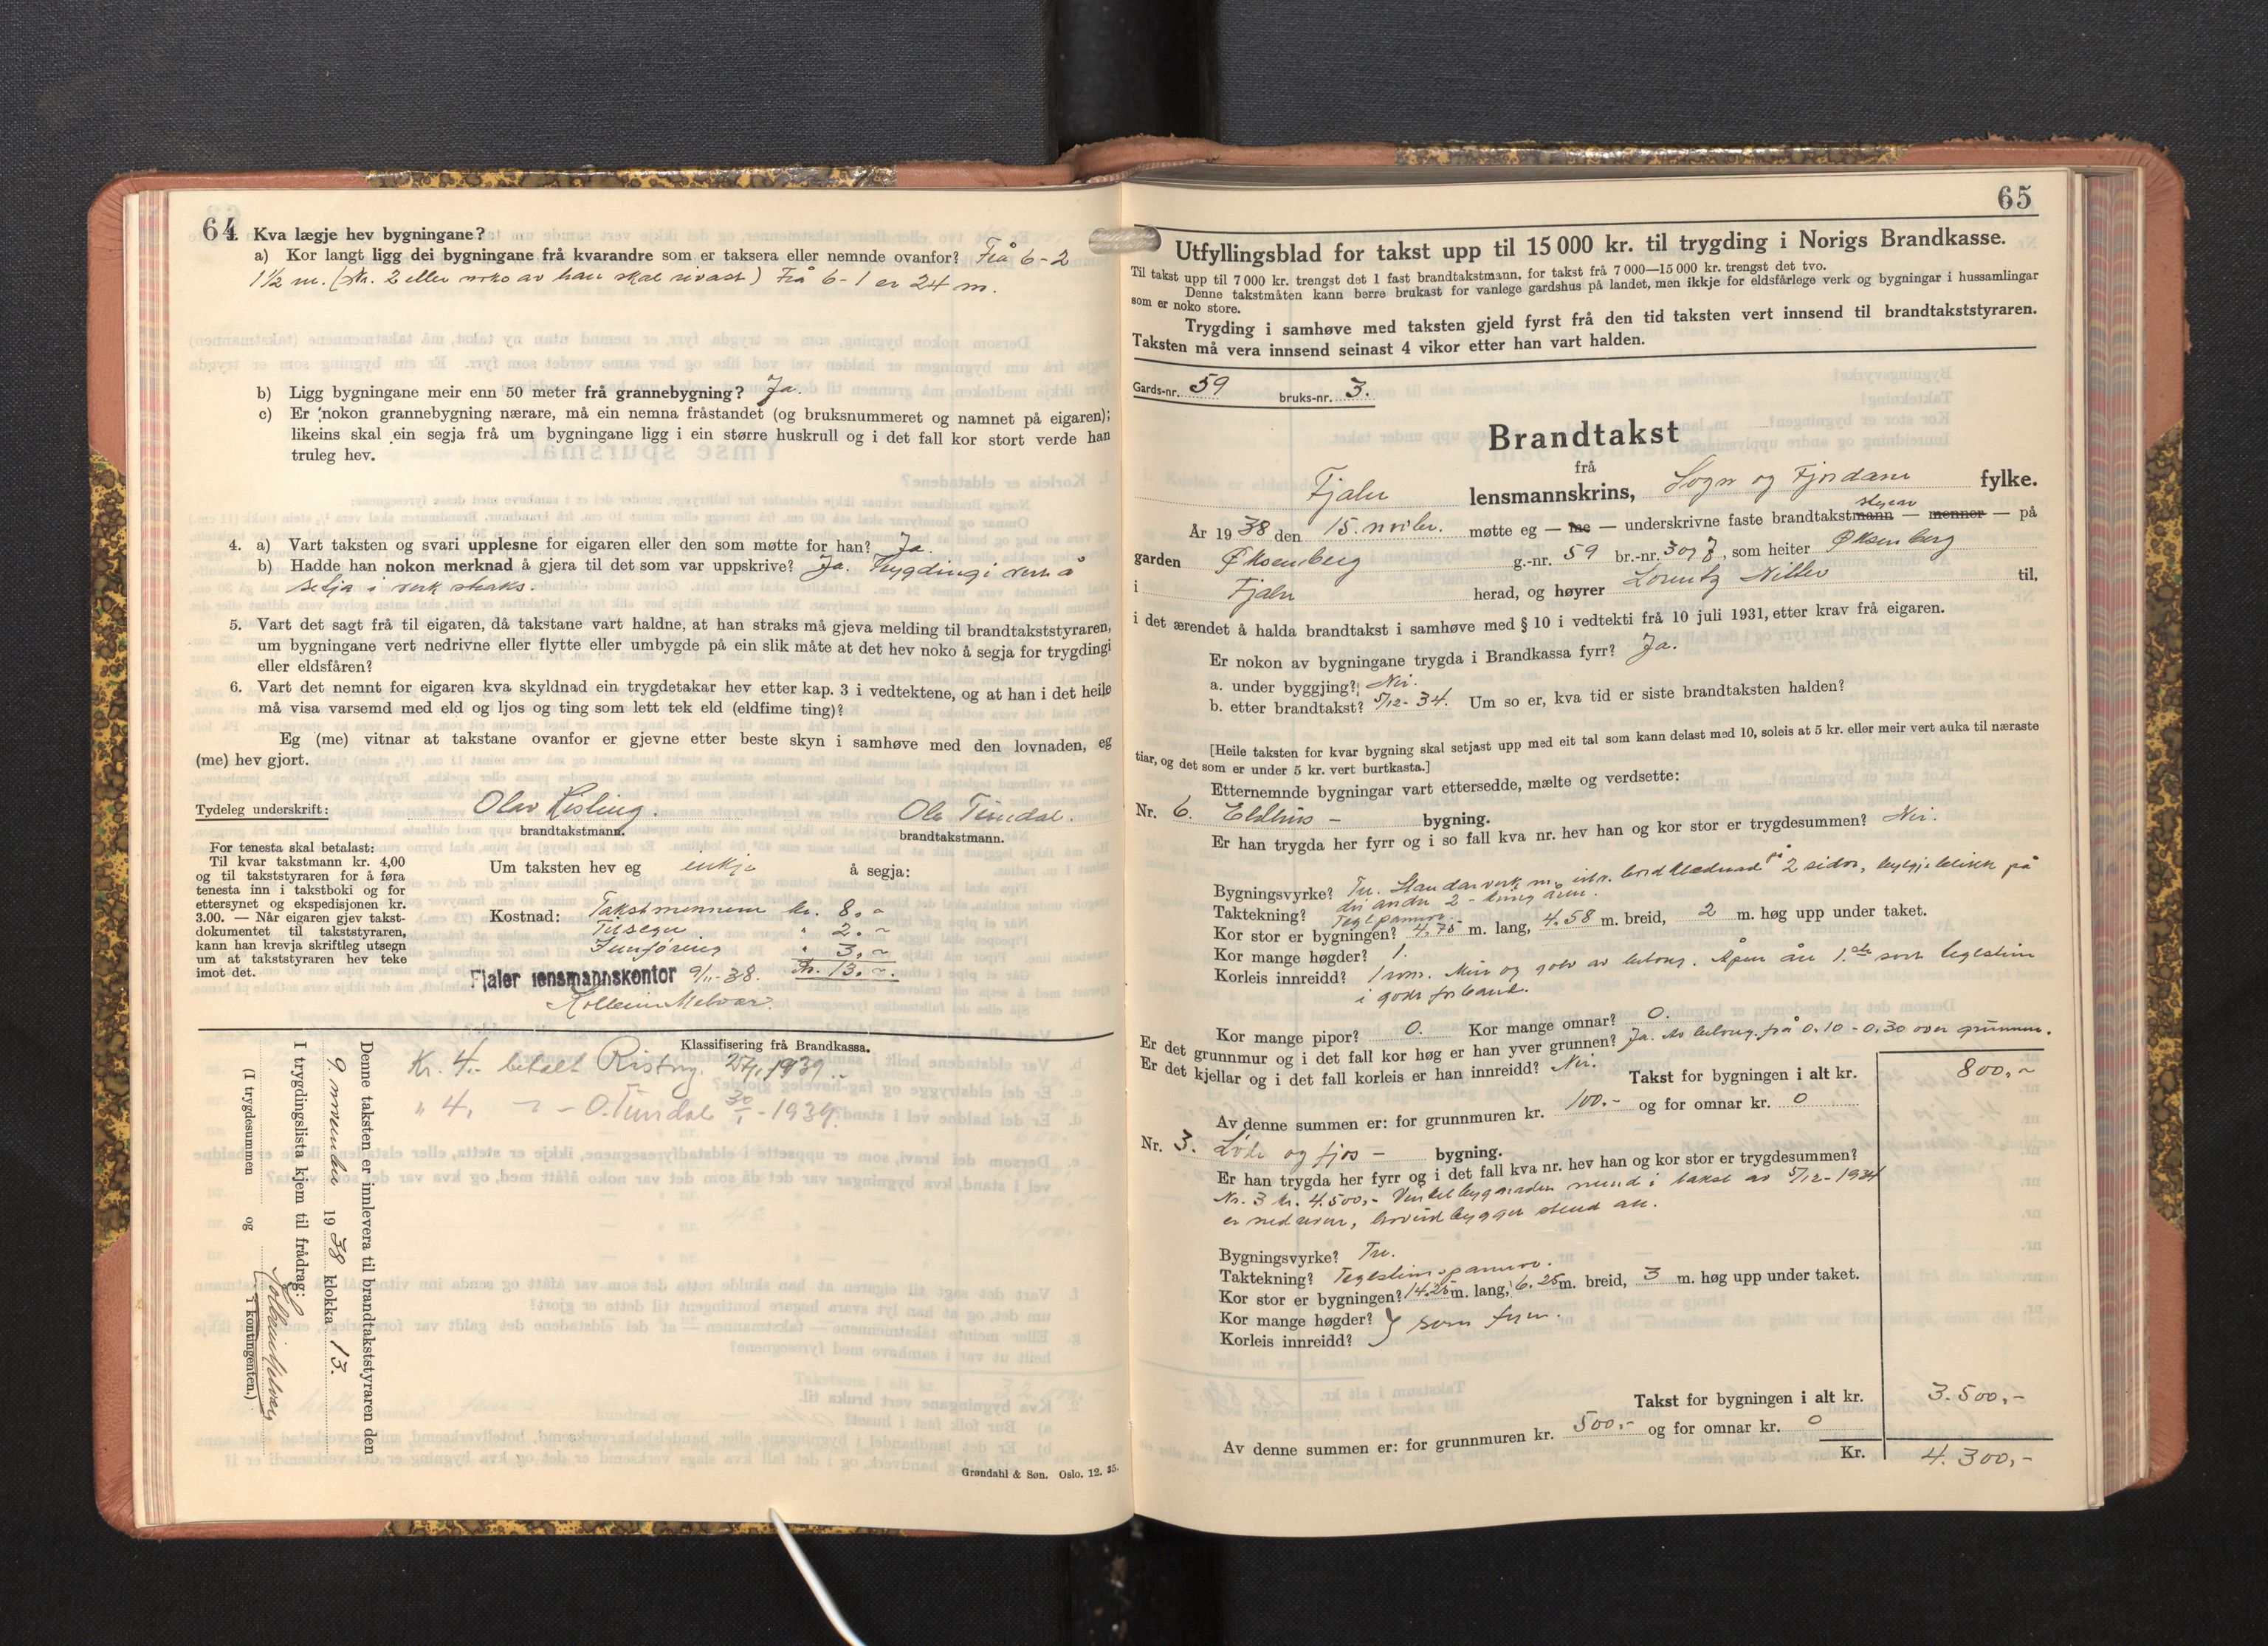 64
Kva lægje hev bygningane?
a) Kor langt ligg dei bygningane frå kvarandre som er taksera eller nemnde ovanfor? Frå 6-2
1½ m. (Nr. 2 eller noko av han skal rivast) Frå 6-1 er 24 m.
b) Ligg bygningane meir enn 50 meter frå grannebygning? Ja.
c) Er nokon grannebygning nærare, må ein nemna fråstandet (og bruksnummeret og namnet på eigaren);
likeins skal ein segja frå um bygningane ligg i ein større huskrull og i det fall kor stort verde han
truleg hev.
4. a) Vart taksten og svari upplesne for eigaren eller den som møtte for han? Ja.
b) Hadde han nokon merknad å gjera til det som var uppskrive? Ja. Trygdingi vert å
setja i verk straks.
5. Vart det sagt frå til eigaren, då takstane vart haldne, at han straks må gjeva melding til brandtakststyraren,
um bygningane vert nedrivne eller flytte eller umbygde på ein slik måte at det hev noko å segja for trygdingi
eller eldsfåren?
6. Vart det nemnt for eigaren kva skyldnad ein trygdetakar hev etter kap. 3 i vedtektene, og at han i det heile
må visa varsemd med eld og ljos og ting som lett tek eld (eldfime ting)?
Eg (me) vitnar at takstane ovanfor er gjevne etter beste skyn i samhøve med den lovnaden, eg
(me) hev gjort.
Tydeleg underskrift: Olav Risting. Ole Timdal.
brandtakstmann. brandtakstmann.
For tenesta skal betalast:
Til kvar takstmann kr. 4,00
og til takststyraren for å føra
tenesta inn i takstboki og for
ettersynet og ekspedisjonen kr.
3.00. — Når eigaren gjev takst-
dokumentet til takststyraren,
kann han krevja skriftleg utsegn
um at takststyraren hev teke
imot det.
Um taksten hev eg inkje å segja:
Kostnad: Takstmennene kr. 8,-
Tilsegn " 2,-
Innføring " 3,-
Kr. 13,-
Fjaler lensmannskontor 9/11-38.
Klassifisering frå Brandkassa.
Kr. 4.- betalt Risting. 27/1 1939.
" 4, - O. Timdal 30/1-1939.
Denne taksten er innlevera til brandtakststyraren den
9. november 1938 klokka 13.
I trygdingslista kjem til frådrag:
(I trygdesummen og i kontingenten.)
Grøndahl & Søn. Oslo. 12. 35.
65
Utfyllingsblad for takst upp til 15 000 kr. til trygding i Norigs Brandkasse.
Til takst upp til 7 000 kr. trengst det 1 fast brandtakstmann, for takst frå 7 000—15 000 kr. trengst det tvo.
Denne takstmåten kann berre brukast for vanlege gardshus på landet, men ikkje for eldsfårlege verk og bygningar i hussamlingar
som er noko store.
Trygding i samhøve med taksten gjeld fyrst frå den tid taksten vert innsend til brandtakststyraren.
Taksten må vera innsend seinast 4 vikor etter han vart halden.
Gards-nr. 59 bruks-nr. 3.
Brandtakst
frå
Fjaler lensmannskrins, Sogn og Fjordane fylke.
År 1938 den 15. novbr. møtte eg — me — underskrivne faste brandtakstmann styrar — menner — på
garden Øksenberg g.-nr. 59 br.-nr. 3 og 7, som heiter Øksenberg
i Fjaler herad, og høyrer Lorentz til.
i det ærendet å halda brandtakst i samhøve med § 10 i vedtekti frå 10 juli 1931, etter krav frå eigaren.
Er nokon av bygningane trygda i Brandkassa fyrr? Ja.
a. under byggjing? Nei.
b. etter brandtakst? 5/12-34. Um so er, kva tid er siste brandtaksten halden?
[Heile taksten for kvar bygning skal setjast upp med eit tal som kann delast med 10, soleis at 5 kr. eller meir vert auka til næraste
tiar, og det som er under 5 kr. vert burtkasta.]
Etternemnde bygningar vart ettersedde, mælte og verdsette:
Nr. 6. Eldhus - bygning.
Er han trygda her fyrr og i so fall kva nr. hev han og kor stor er trygdesummen? Nei.
Bygningsvyrke? Tre. Standarverk m. utv. bordklædnad på 2 sidor, bylgjeblikk på
dei andre 2 -
Taktekning? Teglpannor.
Kor stor er bygningen? 4.75 m. lang, 4.58 m. breid, 2 m. høg upp under taket.
Kor mange høgder? 1.
Korleis innreidd? 1 rom. Mur og golv av betong. Åpen åre 1.ste sort teglstein
i godt forband.
Kor mange pipor? 0. Kor mange omnar? 0.
Er det grunnmur og i det fall kor høg er han yver grunnen? Ja. Av betong, frå 0.10 - 0.30 over grunnen.
Er det kjellar og i det fall korleis er han innreidd? Nei.
Takst for bygningen i alt kr. 800,-
Av denne summen er: for grunnmuren kr. 100.- og for omnar kr. 0
Nr. 3. Løde og fjos - bygning.
Er han trygda her fyrr og i det fall kva nr. hev han og kor stor er trygdesummen?
Nr. 3 kr. 4.500,- Vinkelbygnaden nemnd i takst av 5/12-1934
er nedriven, hovudbygget stend att.
Bygningsvyrke? Tre.
Taktekning? Teglsteinspannor.
Kor stor er bygningen? 14.25 m. lang, 6.25 m. breid, 3 m. høg upp under taket.
Kor mange høgder? } som fyrr.
Korleis innreidd?
Takst for bygningen i alt kr. 3.500,-
Av denne summen er: for grunnmuren kr. 500.- og for omnar kr. 0
Kr. 4.300,-